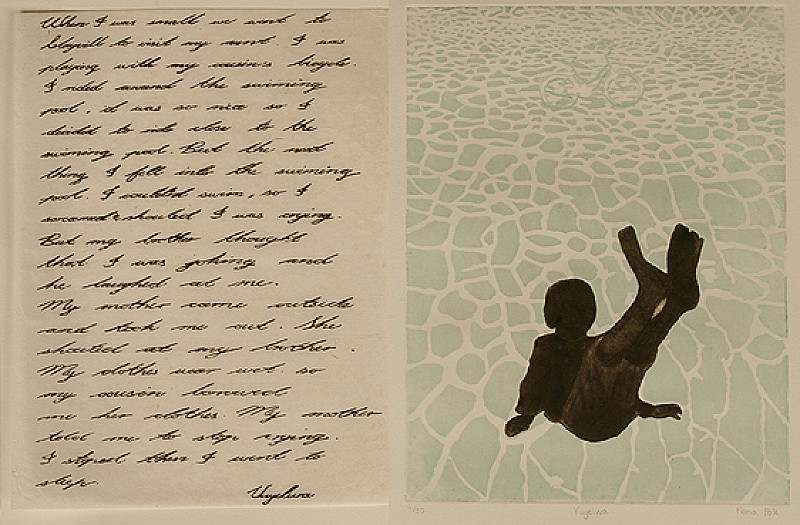 When I was small we went to
to visit my aunt. I was
playing with my cousin's bicycle.
I rided around the swiming
pool, it was so nice so I
decided to ride close to the
swiming pool. But the next
thing I fell into the swiming
pool. I couldn't swim, so I
screamed & shouted I was crying.
But my brother thought
that I was joking and
he laughed at me.
My mother came outside
and took me out. She
shouted at my brother.
My clothes wear wet. so
my cousin borowed
me her clothes. My mother
told me to stop crying.
I stoped then I went to
sleep.
Vuyelwa
/30 Vuyelwa Fiona Pole